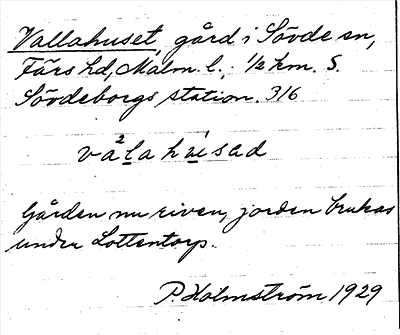 Vallahuset, gård i Sövde sn,
Färs hd, Malm. l., 1/2 km. S.
Sövdeborgs station. 3/6
va²la húsad
Gården nu riven, jorden brukas
under Lottentorp.
P. Holmström 1929